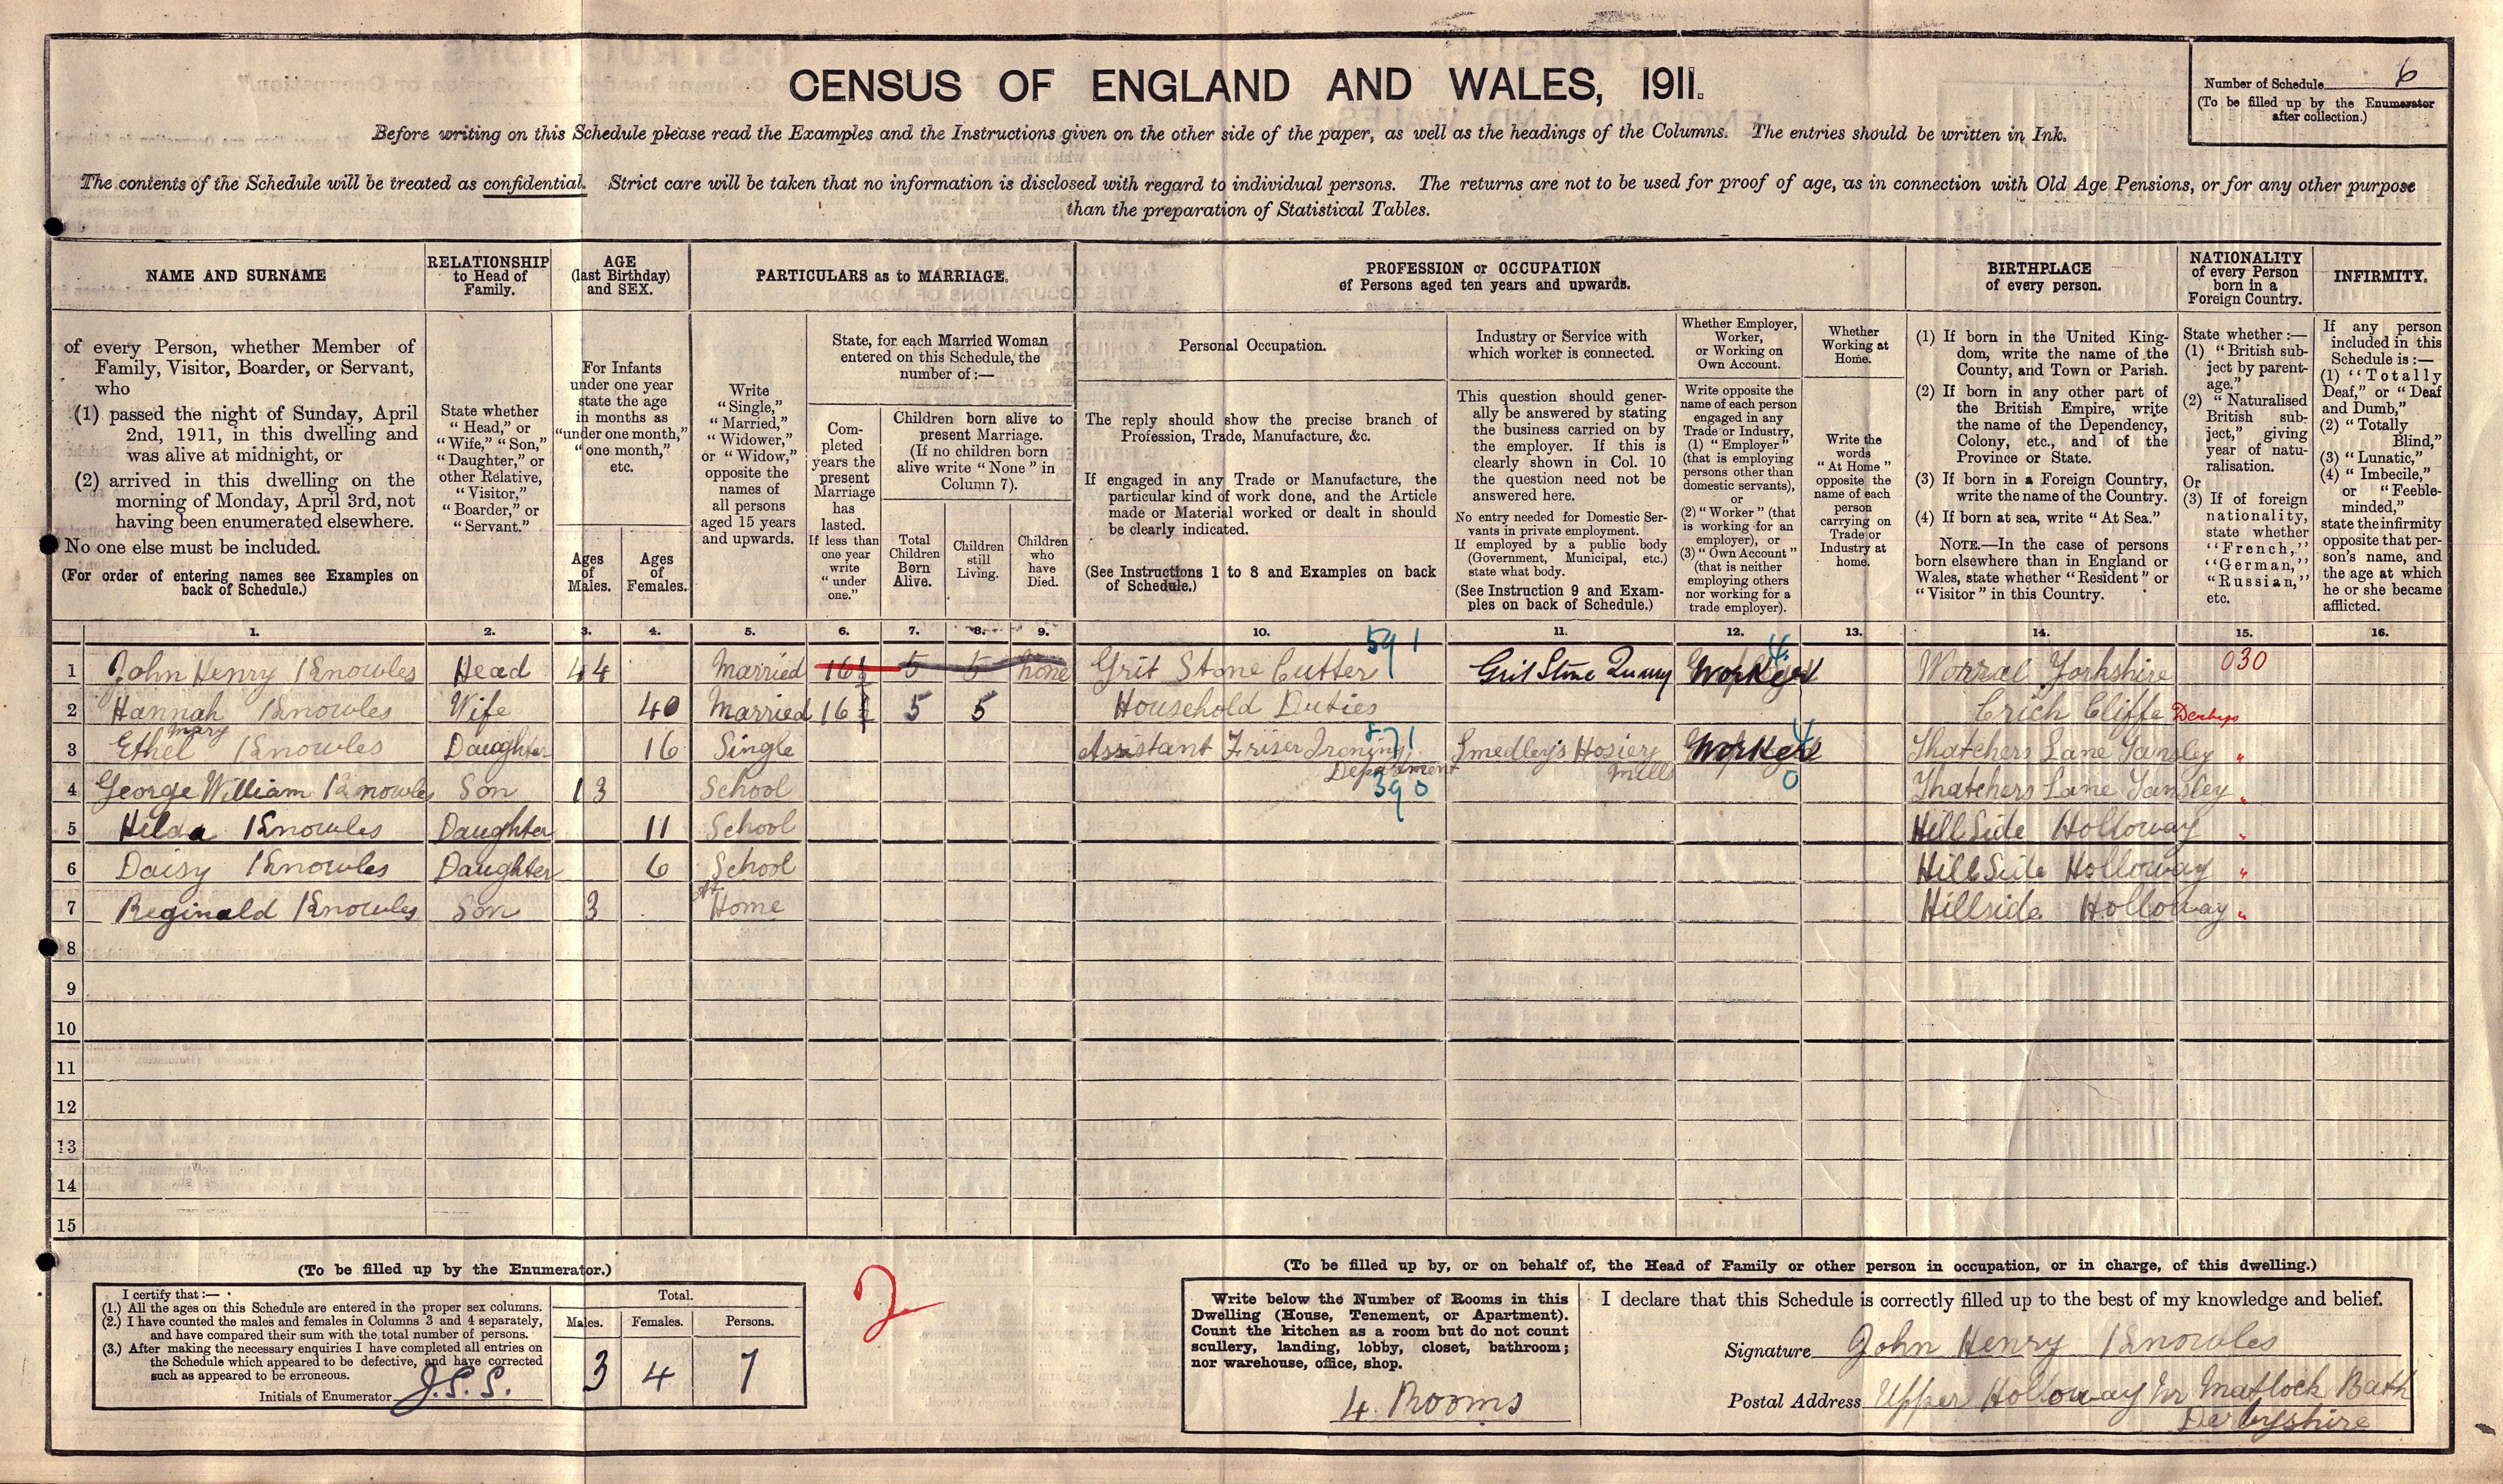 CENSUS OF ENGLAND AND WALES, 1911.
Number of Schedule 6
(To be filled up by the Enumerator
after collection.)
Before writing on this Schedule please read the Examples and the Instructions given on the other side of the paper, as well as the headings of the Columns. The entries should be written in Ink.
The contents of the Schedule will be treated as confidential. Strict care will be taken that no information is disclosed with regard to individual persons. The returns are not to be used for proof of age, as in connection with Old Age Pensions, or for any other purpose
than the preparation of Statistical Tables.
NAME AND SURNAME
RELATIONSHIP
to Head of
Family.
AGE
(last Birthday)
and SEX.
PARTICULARS as to MARRIAGE.
PROFESSION or OCCUPATION
of Persons aged ten years and upwards.
BIRTHPLACE
of every person.
NATIONALITY
of every Person
born in a
Foreign Country.
INFIRMITY.
of every Person, whether Member of
Family, Visitor, Boarder, or Servant,
who
(1) passed the night of Sunday, April
2nd, 1911, in this dwelling and
was alive at midnight, or
(2) arrived in this dwelling on the
morning of Monday, April 3rd, not
having been enumerated elsewhere.
No one else must be included.
(For order of entering names see Examples on
back of Schedule.)
State whether
"Head," or
"Wife," "Son,"
"Daughter," or
other Relative,
"Visitor,"
"Boarder," or
"Servant."
For Infants
under one year
state the age
in months as
"under one month,"
"one month,"
etc.
Ages
of
Males.
Ages
of
Females.
Write
"Single,"
"Married,"
"Widower,"
or "Widow,"
opposite the
names of
all persons
aged 15 years
and upwards.
State, for each Married Woman
entered on this Schedule, the
number of:—
Com-
pleted
years the
present
Marriage
has
lasted.
If less than
one year
write
"under
one."
Children born alive to
present Marriage.
(If no children born
alive write "None" in
Column 7).
Total
Children
Born
Alive.
Children
still
Living.
Children
who
have
Died.
Personal Occupation.
The reply should show the precise branch of
Profession, Trade, Manufacture, &c.
If engaged in any Trade or Manufacture, the
particular kind of work done, and the Article
made or Material worked or dealt in should
be clearly indicated.
(See Instructions 1 to 8 and Examples on back
of Schedule.)
Industry or Service with
which worker is connected.
This question should gener-
ally be answered by stating
the business carried on by
the employer. If this is
clearly shown in Col. 10
the question need not be
answered here.
No entry needed for Domestic Ser-
vants in private employment.
If employed by a public body
(Government, Municipal, etc.)
state what body.
(See Instruction 9 and Exam-
ples on back of Schedule.)
Whether Employer,
Worker,
or Working on
Own Account.
Write opposite the
name of each person
engaged in any
Trade or Industry,
(1) "Employer"
(that is employing
persons other than
domestic servants),
or
(2) "Worker" (that
is working for an
employer), or
(3) "Own Account"
(that is neither
employing others
nor working for a
trade employer).
Whether
Working at
Home.
Write the
words
"At Home"
opposite the
name of each
person
carrying on
Trade or
Industry at
home.
(1) If born in the United King-
dom, write the name of the
County, and Town or Parish.
(2) If born in any other part of
the British Empire, write
the name of the Dependency,
Colony, etc., and of the
Province or State.
(3) If born in a Foreign Country,
write the name of the Country.
(4) If born at sea, write "At Sea."
NOTE.—In the case of persons
born elsewhere than in England or
Wales, state whether "Resident" or
"Visitor" in this Country.
State whether:—
(1) "British sub-
ject by parent-
age."
(2) "Naturalised
British sub-
ject," giving
year of natu-
ralisation.
Or
(3) If of foreign
nationality,
state whether
"French,"
"German,"
"Russian,"
etc.
If any person
included in this
Schedule is:—
(1) "Totally
Deaf," or "Deaf
and Dumb,"
(2) "Totally
Blind,"
(3) "Lunatic,"
(4) "Imbecile,"
or "Feeble-
minded,"
state the infirmity
opposite that per-
son's name, and
the age at which
he or she became
afflicted.
1. 2. 3. 4. 5. 6. 7. 8. 9. 10. 11. 12. 13. 14. 15. 16.
591
1 John Henry Knowles Head 44 Married 16½ 5 5 none Grit Stone Cutter Grit Stone Quarry Worker 4 Worral Yorkshire 030
2 Hannah Knowles Wife 40 Married 16½ 5 5 Household Duties Crich Cliffe Derbys
3 Ethel Mary Knowles Daughter 16 Single Assistant Friser Ironing Department 871 Smedley's Hosiery Mills Worker 4 Thatchers Lane Tansley "
4 George William Knowles Son 13 School 390 0 Thatchers Lane Tansley "
5 Hilda Knowles Daughter 11 School Hill Side Holloway "
6 Daisy Knowles Daughter 6 School Hill Side Holloway "
7 Reginald Knowles Son 3 At Home Hillside Holloway "
8
9
10
11
12
13
14
15
(To be filled up by the Enumerator.)
I certify that:—
(1.) All the ages on this Schedule are entered in the proper sex columns.
(2.) I have counted the males and females in Columns 3 and 4 separately,
and have compared their sum with the total number of persons.
(3.) After making the necessary enquiries I have completed all entries on
the Schedule which appeared to be defective, and have corrected
such as appeared to be erroneous.
Initials of Enumerator J.S.S.
Total.
Males. Females. Persons.
3 4 7
2
(To be filled up by, or on behalf of, the Head of Family or other person in occupation, or in charge, of this dwelling.)
Write below the Number of Rooms in this
Dwelling (House, Tenement, or Apartment).
Count the kitchen as a room but do not count
scullery, landing, lobby, closet, bathroom;
nor warehouse, office, shop.
4 Rooms
I declare that this Schedule is correctly filled up to the best of my knowledge and belief.
Signature John Henry Knowles
Postal Address Upper Holloway Nr Matlock Bath
Derbyshire